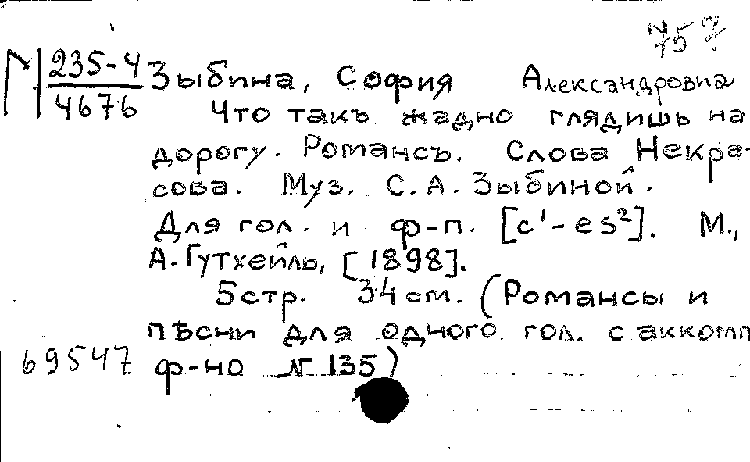 757
М 235-4/4676 Зыбина, София Александровна
Что такъ жадно глядишь на
дорогу. Романсъ. Слова Некра-
сова. Муз. С. А. Зыбиной.
Для гол. и ф-п. [c¹-es²]. М.,
А. Гутхейль, [1898].
5 стр. 34 см. (Романсы и
пѣсни для одного гол. с аккомп
69547 ф-но № 135)